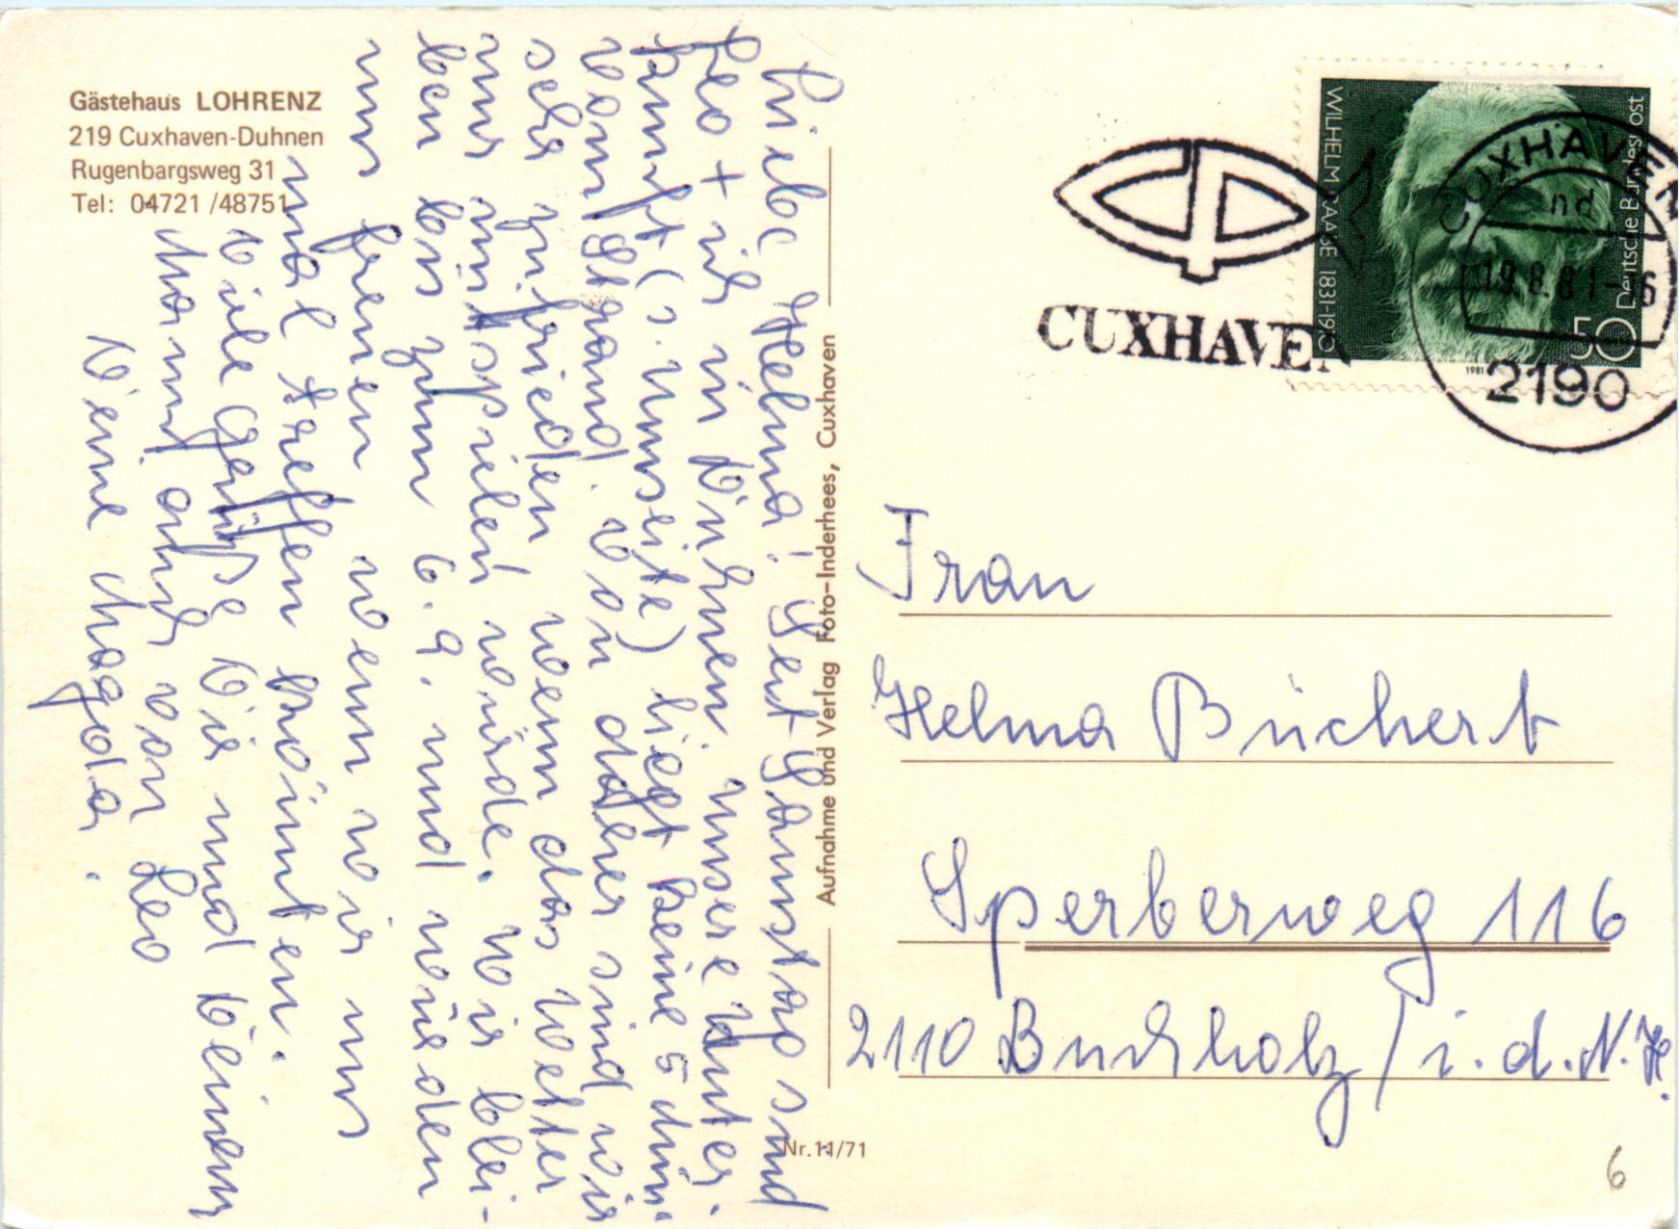 Gästehaus LOHRENZ
219 Cuxhaven-Duhnen
Rugenbargsweg 31
Tel: 04721 /48751
Liebe Helma! Seit Samstag sind
Leo + ich in Duhnen. Unsere Unter-
kunft (s. Umseite) liegt keine 5 Min.
vom Strand. Von daher sind wir
sehr zufrieden wenn das Wetter
nur mitspielen würde. Wir blei-
ben bis zum 6.9. und würden
uns freuen wenn wir uns
mal treffen könnten.
Viele Grüße Dir und Deinem
Mann auch von Leo
Deine Magda.
Aufnahme und Verlag Foto-Inderhees, Cuxhaven
Nr. 11/71
CUXHAVEN
WILHELM RAABE 1831-1910
Deutsche Bundespost
50
1981
CUXHAVEN
nd
19.8.81-16
2190
Frau
Helma Büchert
Sperberweg 116
2110 Buchholz / i. d. N. H.
6